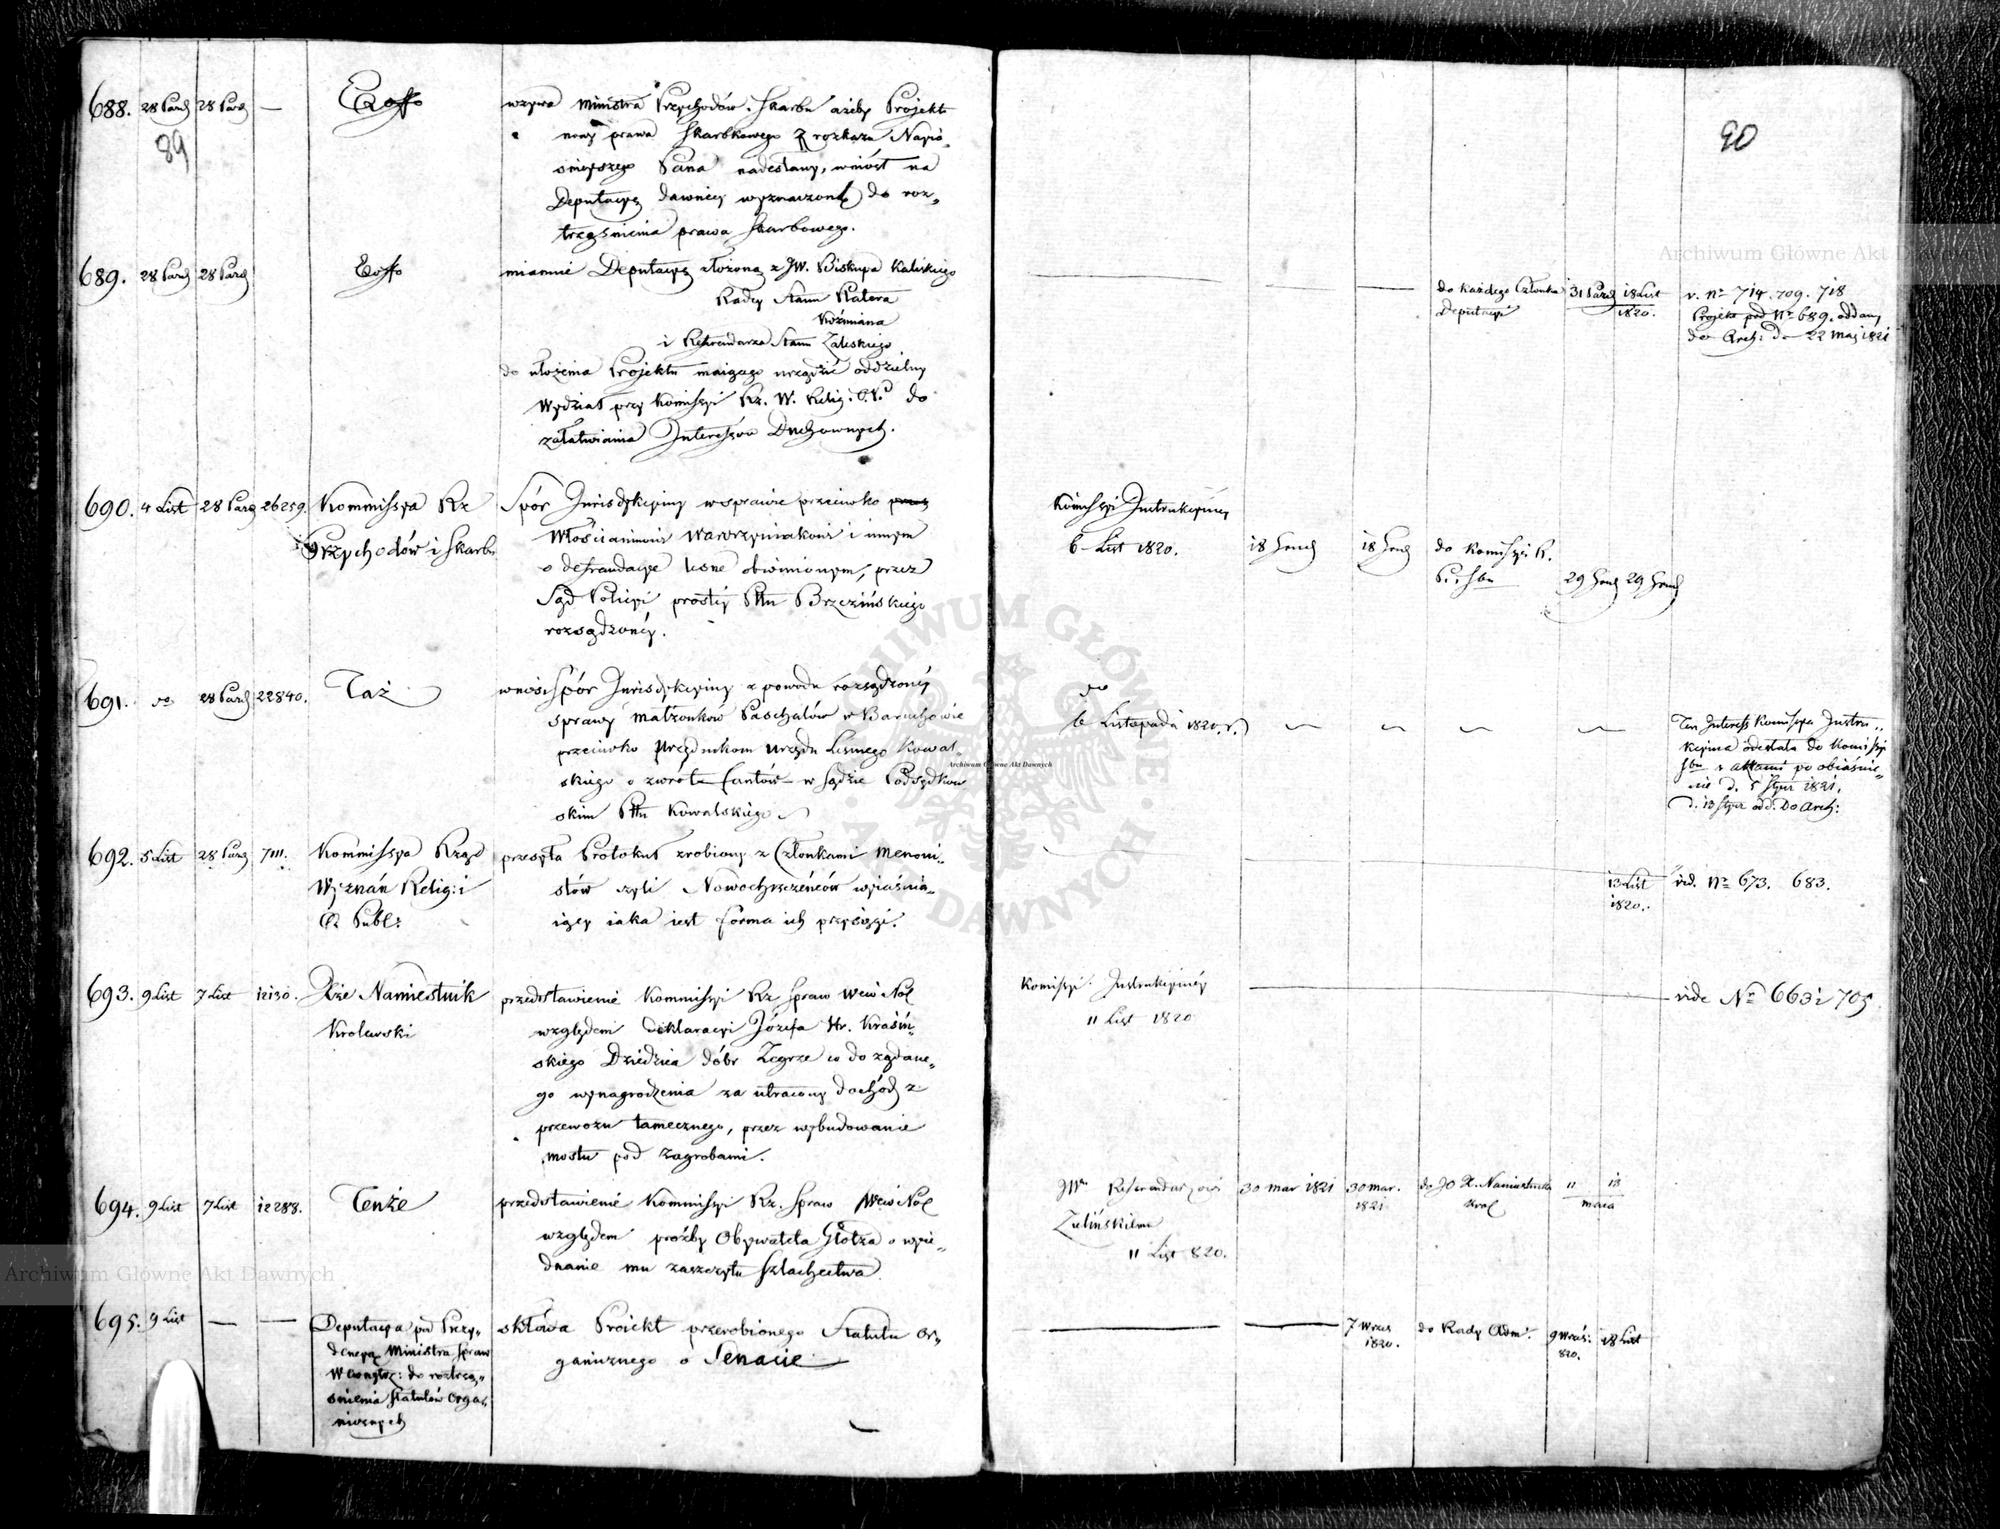 688. 28 Paźd 28 Paźd —
89
wzywa Ministra Przychodów i Skarbu ażeby Projekt
nowy prawa Skarbowego z rozkazu Nayja-
śnieyszego Pana nadesłany, wniósł na
Deputacyę dawniey wyznaczoną do roz-
trząśnienia prawa Skarbowego.
689. 28 Paźd 28 Paźd
mianuie Deputacyę złożoną z JW. Biskupa Kaliskiego
Radcy Stanu Platera
Koźmiana
i Referendarza Stanu Zaleskiego
do ułożenia Projektu maiącego urządzić oddzielny
Wydział przy Kommissyi Rz. W. Relig: O. P. do
załatwiania Interessów Duchownych.
690. 4 List 28 Paźd 26259. Kommissya Rz
Przychodów i Skarbu
Spór Jurisdykcyiny w sprawie przeciwko
Włościaninowi Wawrzyniakowi i innym
o defraudacye leśne obwinionym, przez
Sąd Policyi prostey Pttu Brzezińskiego
rozsądzoney.
691. do 28 Paźd 22840. Taż
wnosi Spór Jurisdykcyiny z powodu rozsądzoney
sprawy małżonków Paschalów w Baruchowie
przeciwko Urzędnikom Urzędu Leśnego Kowal-
skiego o zwrót fantów w Sądzie Podsędkow
skim Pttu Kowalskiego
692. 5 List 28 Paźd 7111. Kommissya Rząd
Wyznań Relig: i
O. Publ:
przesyła Protokuł zrobiony z Członkami Menoni-
stów czyli Nowochrzczeńców wyiaśnia-
iący iaka iest forma ich przysięgi.
693. 9 List 7 List 12130. Xże Namiestnik
Krolewski
przedstawienie Kommissyi Rz Spraw Wew i Pol
względem deklaracyi Józefa Hr. Krasiń-
skiego Dziedzica dóbr Zegrze co do żądane-
go wynagrodzenia za utracony dochód z
przewozu tamecznego, przez wybudowanie
mostu pod Zagrobami.
694. 9 List 7 List 12288. Tenże
przedstawienie Kommissyi Rz. Spraw Wew i Pol
względem prożby Obywatela Glotza o wyie-
dnanie mu zaszczytu Szlachectwa
695. 9 List — — Deputacya pod Prezy-
dencyą Ministra Spraw
Wewnętrz: do roztrzą-
śnienia Statutów Orga-
nicznych
składa Proiekt przerobionego Statutu Or-
ganicznego o Senacie
90
do każdego Członka
Deputacyi
31 Paźd 18 List
1820.
v. Nr 714. 709. 718
Projekt pod Nr 689. oddany
do Arch: d. 22 Maj 1821
Komissyi Instrukcyiney
6 List 1820.
18 Grud
18 Grud
do Komissyi R.
P. i Sbu
29 Grud 29 Grud
do
6 Listopada 1820. r.
Ten Interess Komissya Instru-
kcyina odesłała do Komissyi
Sbu z aktami po obiaśnie-
nie d. 5 Stycz 1821.
d. 13 Stycz odd. do Arch:
13 List
1820.
vid. Nr 673. 683.
Komissyi Instrukcyiney
11 List 1820
vide Nr 663 i 705
JW. Referendarzowi
Zielińskiemu
11 List 820.
30 mar 1821
30 mar.
1821
do JO X. Namiestnika
Król
11 18
maia
7 Wrześ
1820.
do Rady Adm.
9 Wrześ:
820.
18 List
Archiwum Główne Akt Dawnych
Archiwum Główne Akt Dawnych
Archiwum Główne Akt Dawnych
ARCHIWUM GŁÓWNE AKT DAWNYCH